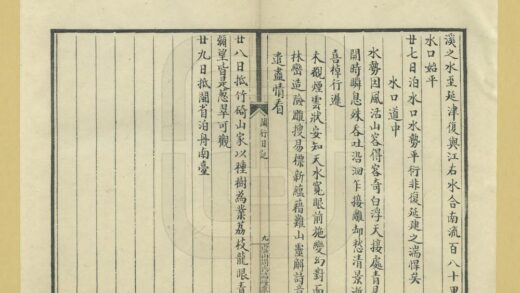 溪之水至延津復與江右水合南流百八十里
水口始平
廿七日泊水口水勢平衍非復延建之湍悍矣
水口道中
水勢因風活山容得客奇白浮天接處青見
開時瞬息殊吞吐沿洄乍接離却愁清景逝
喜棹行遲
未觀煙雲狀安知天水寬眼前施變幻對面
林巒造險雕搜易標新蘊藉難山靈解詩
遣盡情看
閩行日記
九
廿八日抵竹碕山家以種樹為業荔枝龍眼青
望皆是葱翠可觀
廿九日抵閩省泊舟南臺